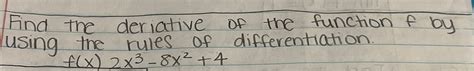 Find the deriative of the function f by
using the rules of differentiation.
f(x) 2x³-8x²+4